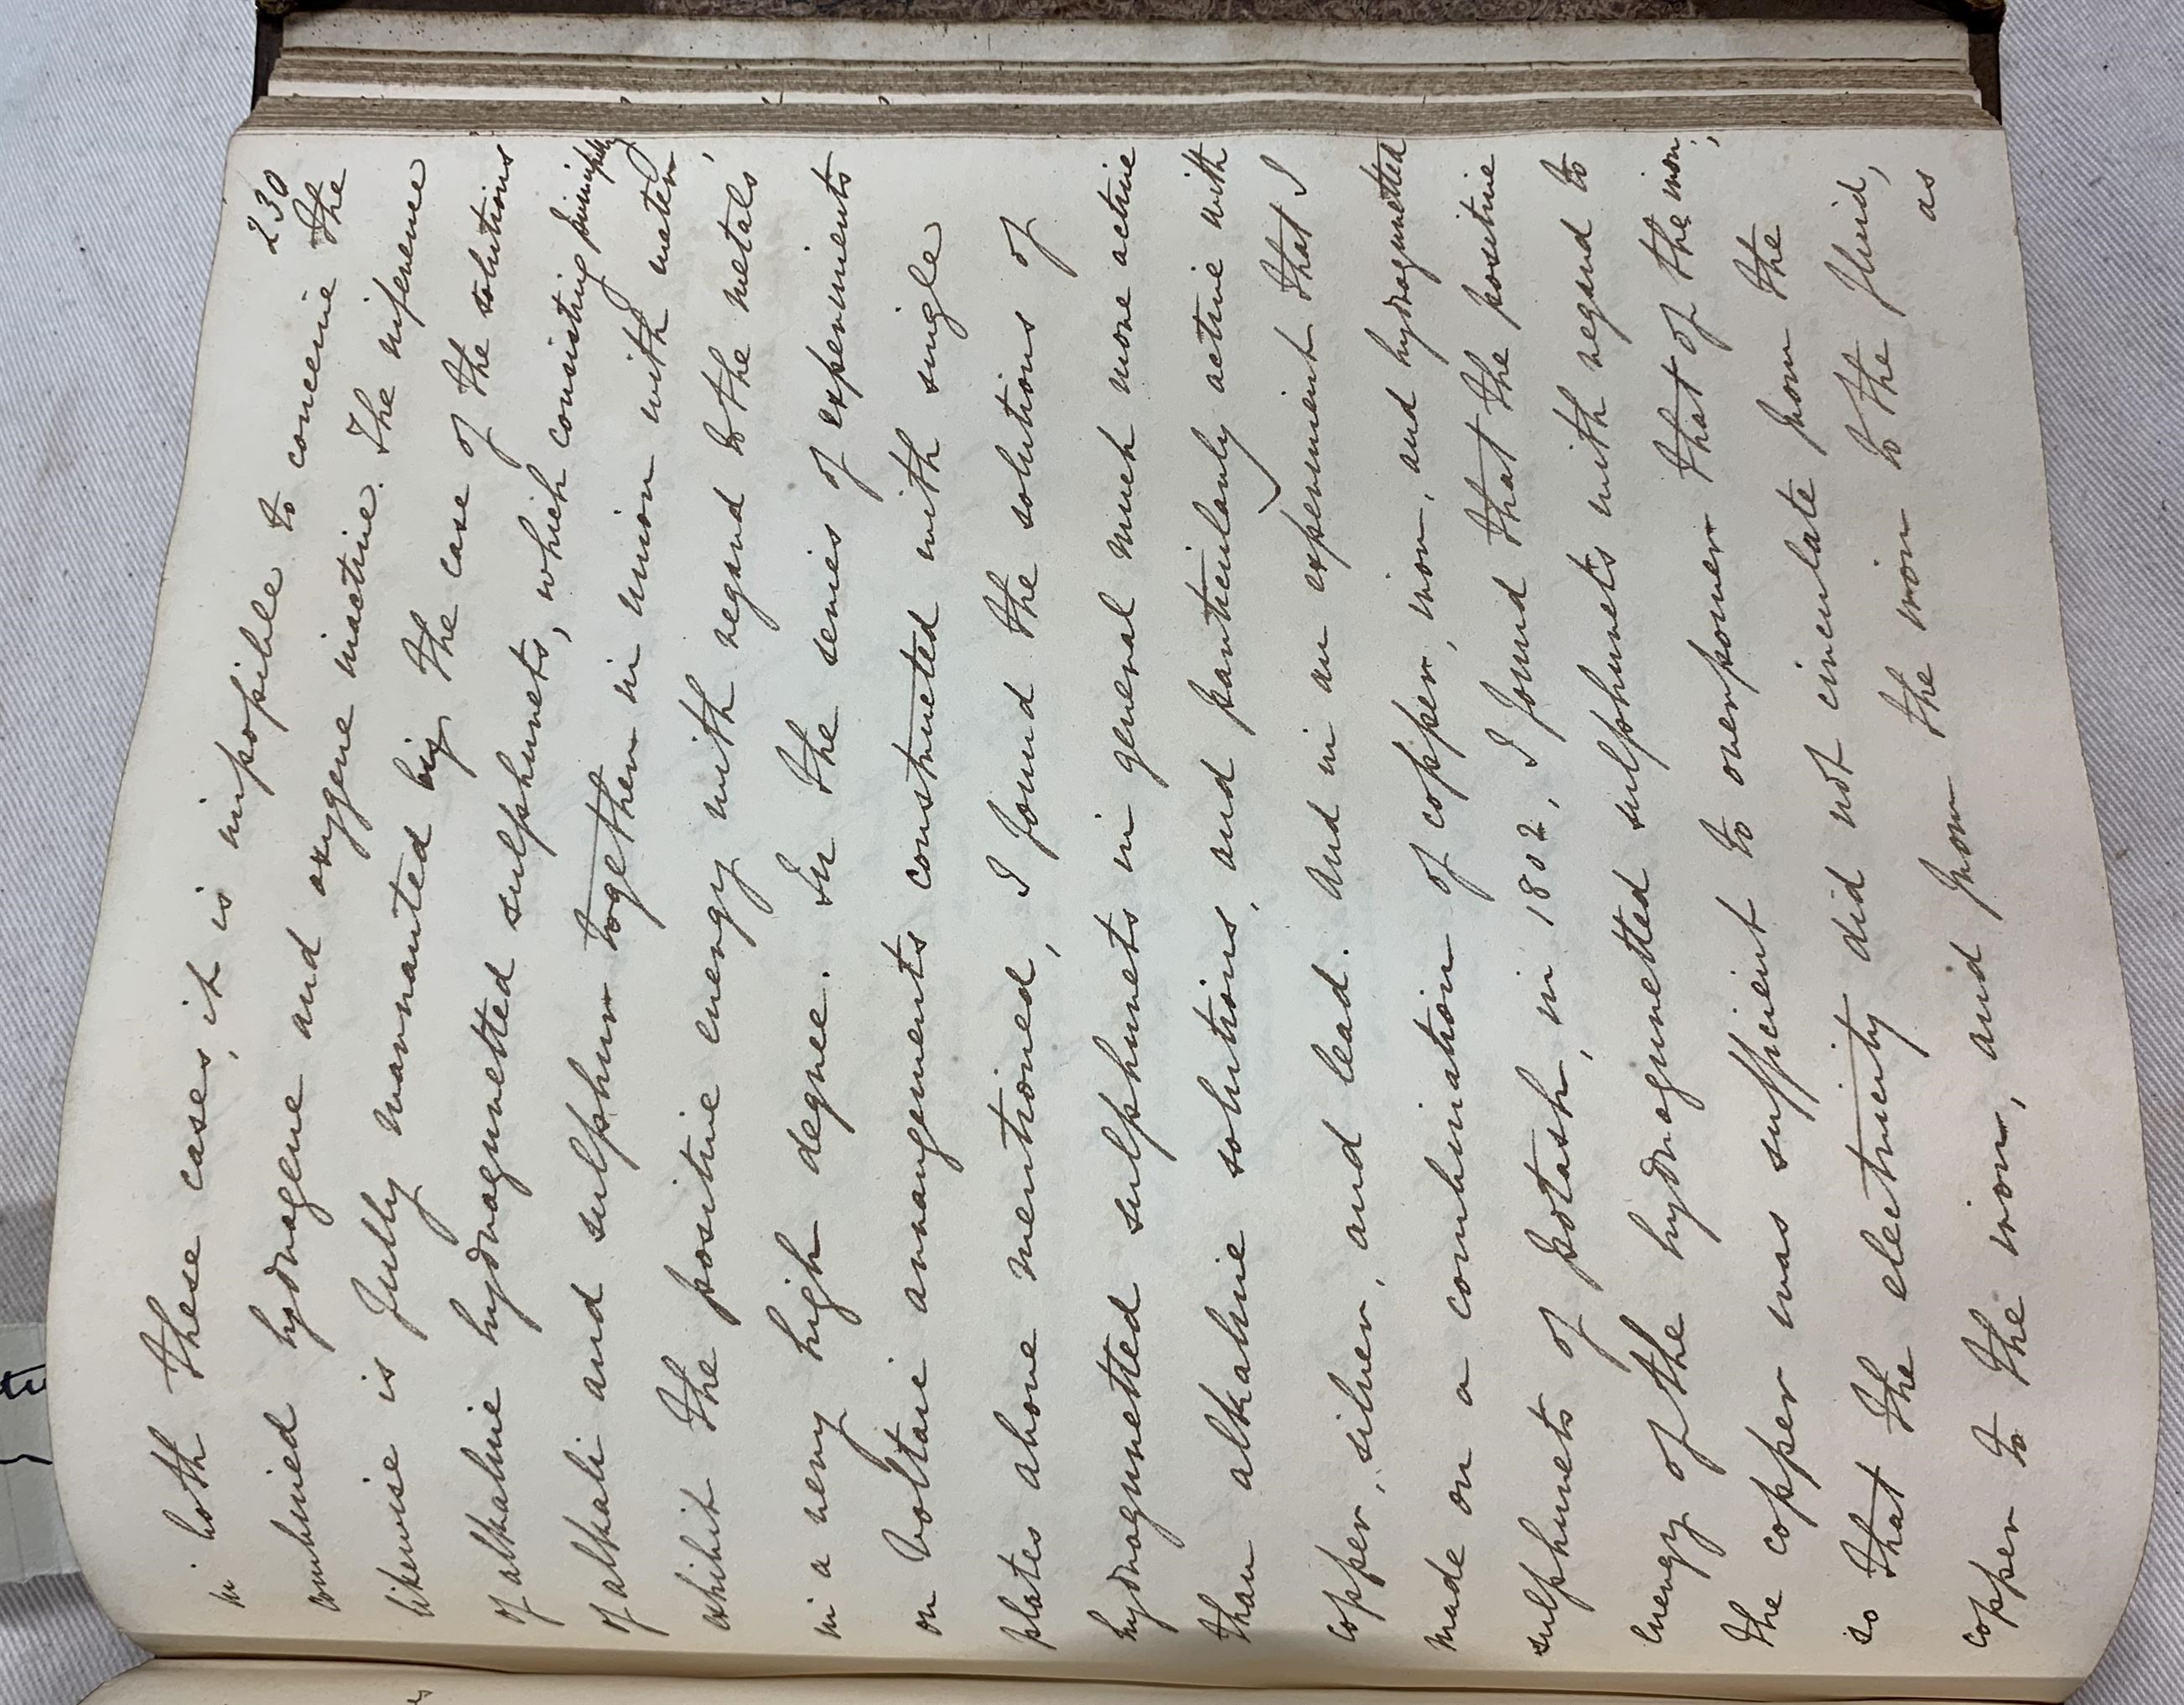 230
in both these cases, it is impossible to conceive the
combined hydrogene and oxygene inactive. The inference
likewise is fully warranted by the case of the solutions
of alkaline hydroguretted sulphurets, which consisting principally
of alkali and sulphur together in union with water,
exhibit the positive energy with regard to the metals,
in a very high degree. In the series of experiments
on Voltaic arrangements constructed with single
plates above mentioned, I found the solutions of
hydroguretted sulphurets in general much more active
than alkaline solutions, and particularly active with
copper, silver, and lead. And in an experiment that I
made on a combination of copper, iron, and hydroguretted
sulphurets of potash, in 1802, I found that the positive
energy of the hydroguretted sulphurets with regard to
the copper was sufficient to overpower that of the iron;
so that the electricity did not circulate from the
copper to the iron, and from the iron to the fluid,
as